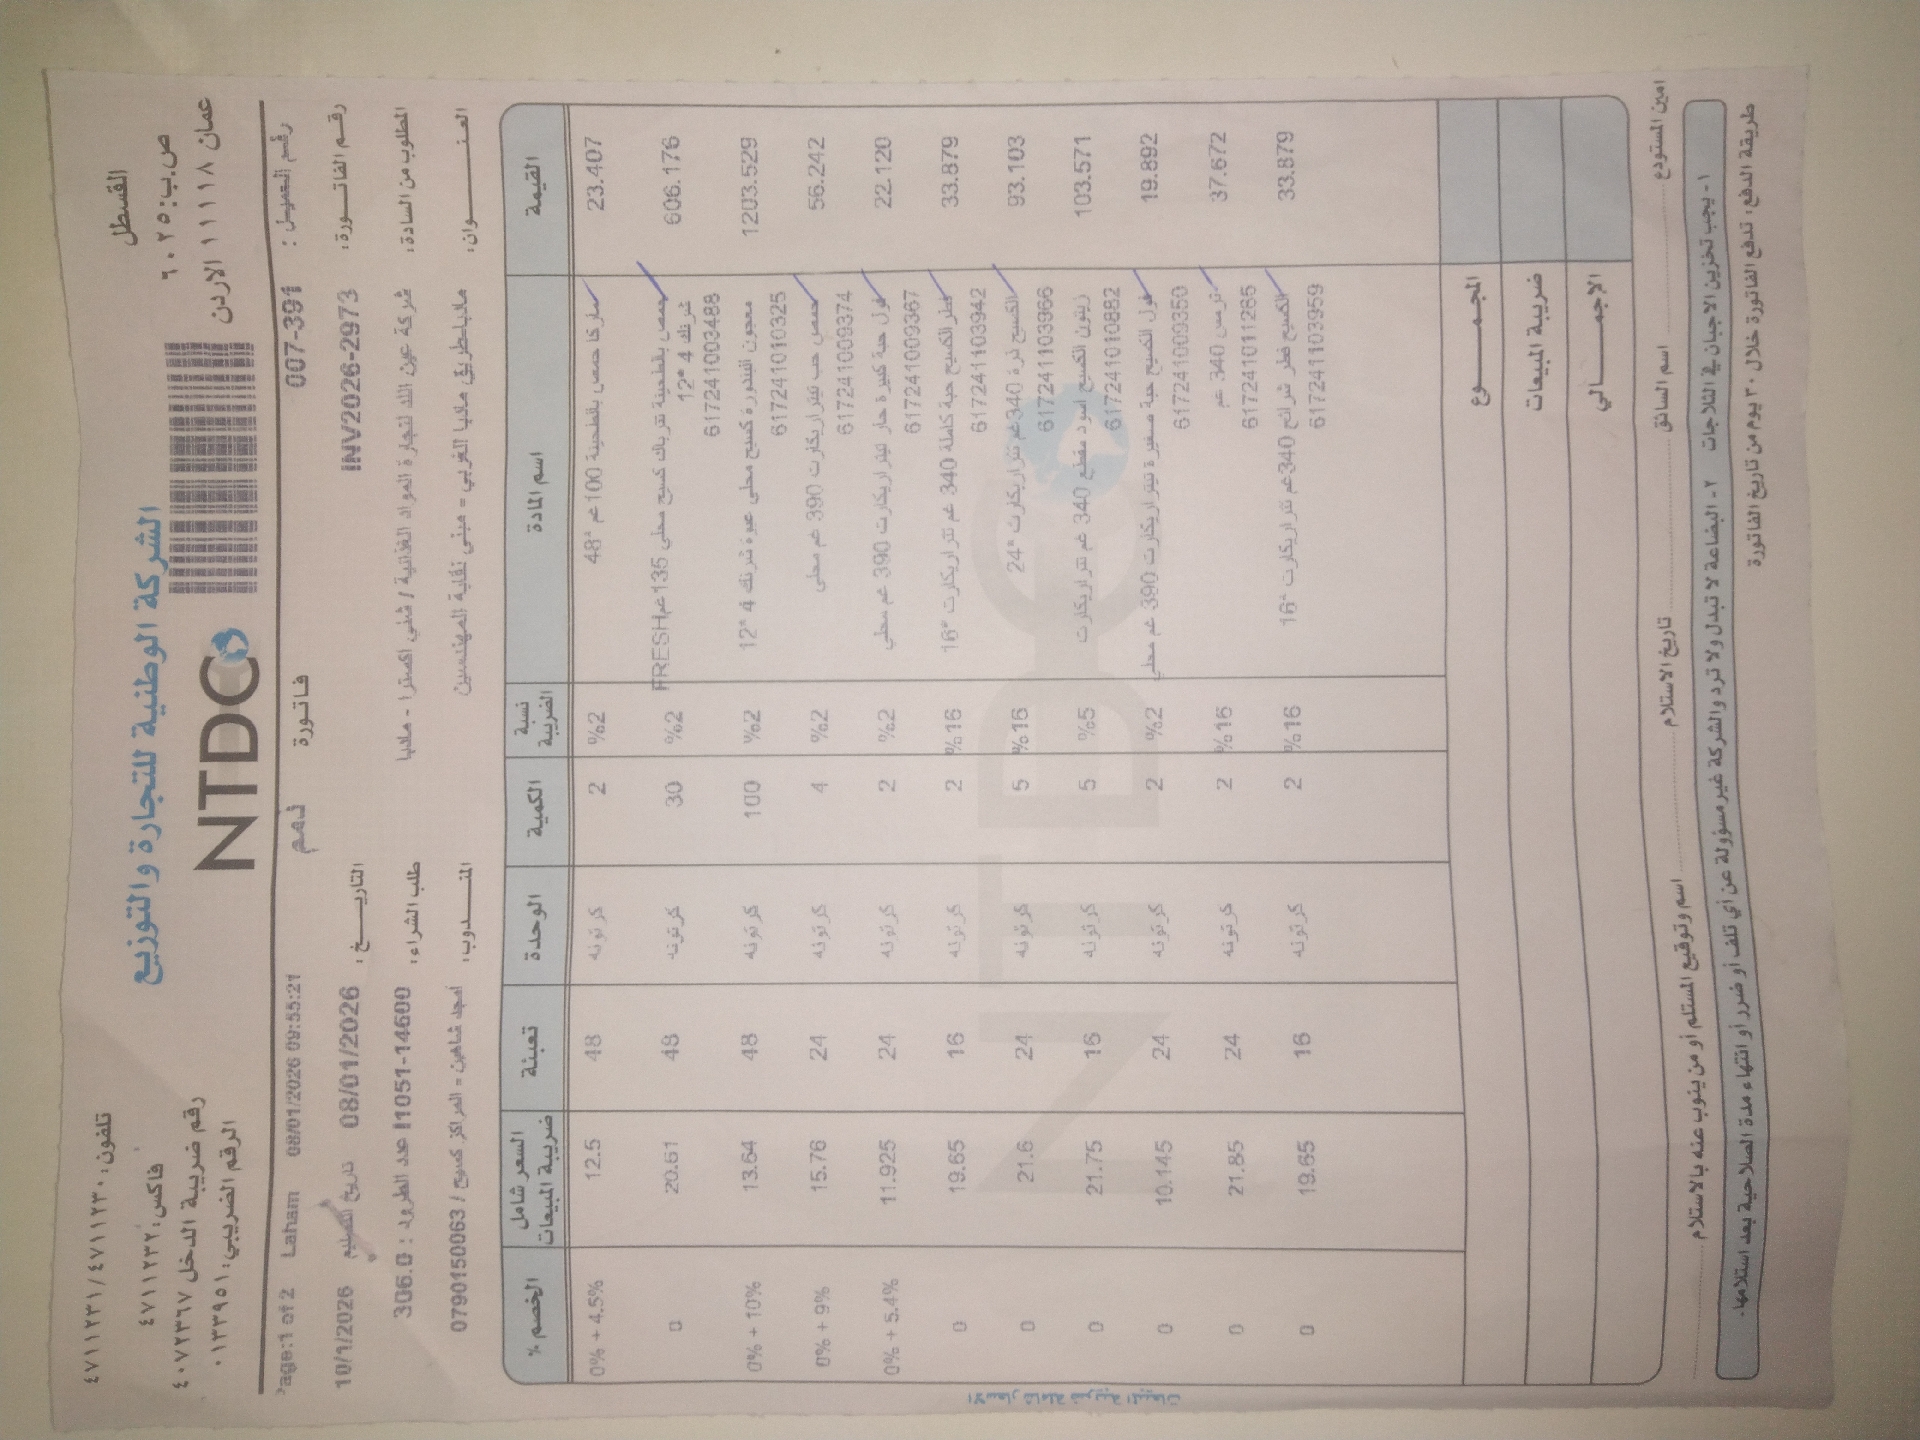 القسطل
ص.ب: ٦٠٢٥
عمان ١١١١٨ الاردن
الشركة الوطنية للتجارة والتوزيع
NTDC
تلفون: ٤٧١١٢٣٠ / ٤٧١١٢٣١
فاكس: ٤٧١١٢٣٢
رقم ضريبة الدخل ٤٠٧٢٣٦٧
الرقم الضريبي: ٠١٣٣٩٥١
رقم العميل : 007-391 فاتورة ذمم 08/01/2026 09:55:21 Laham age:1 of 2
رقم الفاتورة: INV2026-2973 التاريخ : 08/01/2026 تاريخ التسليم 10/1/2026
المطلوب من السادة: شركة عون الله لتجارة المواد الغذائية / شلي اكسترا - مادبا طلب الشراء: I1051-14600 عدد الطرود : 306.0
العنوان: مادبا طريق مادبا الغربي = مبنى نقابة المهندسين المندوب: امجد شاهين = المراكز كسيح / 0790150063
القيمة اسم المادة نسبة الضريبة الكمية الوحدة تعبئة السعر شامل ضريبة المبيعات الخصم %
23.407 حمص بالطحينة 100 غم *48 %2 2 كرتونه 48 12.5 0% + 4.5%
606.176 حمص بالطحينة تتراباك كسيح محلي 135غمFRESH %2 30 كرتونه 48 20.61 0
شرنك 4 *12
6172241003488
1203.529 معجون البندورة كسيح محلي عبوة شرنك 4 *12 %2 100 كرتونه 48 13.64 0% + 10%
6172241010325
56.242 حمص حب تيتراريكارت 390 غم محلي %2 4 كرتونه 24 15.76 0% + 9%
6172241009374
22.120 فول حبة كبيرة حار تيتراريكارت 390 غم محلي %2 2 كرتونه 24 11.925 0% + 5.4%
6172241009367
33.879 فطر الكسيح حبة كاملة 340 غم تتراريكارت *16 %16 2 كرتونه 16 19.65 0
6172241103942
93.103 الكسيح ذرة 340غم تتراريكارت *24 %16 5 كرتونه 24 21.6 0
6172241103966
103.571 زيتون الكسيح اسود مقطع 340 غم تتراريكارت %5 5 كرتونه 16 21.75 0
6172241010882
19.892 فول الكسيح حبة صغيرة تيتراريكارت 390 غم محلي %2 2 كرتونه 24 10.145 0
6172241009350
37.672 ترمس 340 غم %16 2 كرتونه 24 21.85 0
6172241011265
33.879 الكسيح فطر شرائح 340غم تتراريكارت *16 %16 2 كرتونه 16 19.65 0
6172241103959
المجموع
ضريبة المبيعات
الاجمالي
امين المستودع اسم السائق تاريخ الاستلام اسم وتوقيع المستلم أو من ينوب عنه بالاستلام
١- يجب تخزين الاجبان في الثلاجات ٢- البضاعة لا تبدل ولا ترد والشركة غير مسؤولة عن أي تلف أو ضرر أو انتهاء مدة الصلاحية بعد استلامها.
طريقة الدفع: تدفع الفاتورة خلال ٣٠ يوم من تاريخ الفاتورة